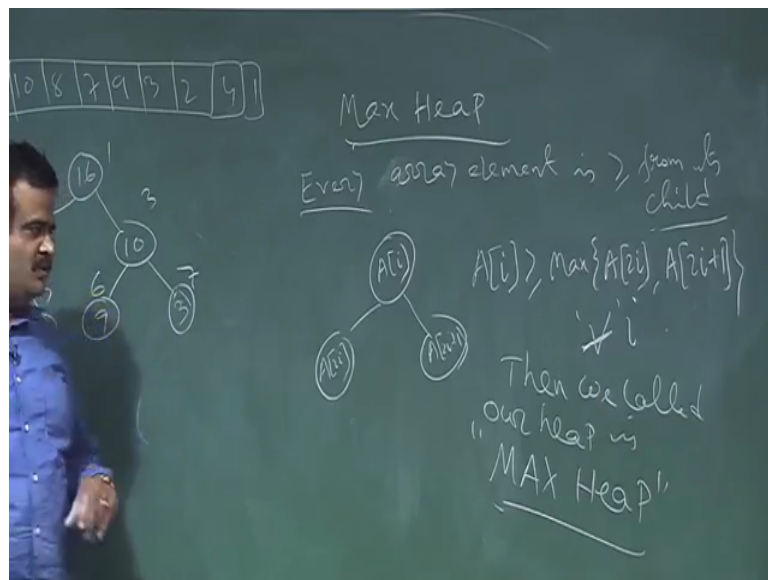 10 8 7 9 3 2 4 1
Max Heap
Every array element is ≥ from its
child
16 1
3
10
6
9
7
3
A[i]
A[2i]
A[2i+1]
A[i] ≥ Max{A[2i], A[2i+1]}
∀ i
Then we called
our heap is
"MAX Heap"